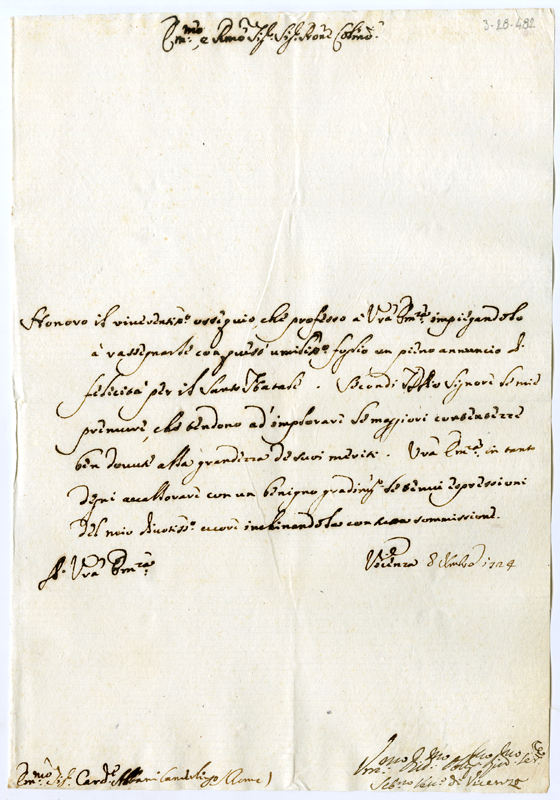 3-28-482
Em.mo e Rmo Sig.r Sig.r Prõne Colmo
Honoro il riverentis.o ossequio, che professo à Vrã Em.za impiegandolo
à rassegnarle con questo umilis.o foglio un pieno annuncio di
felicità per il Santo Natale. Secondi Iddio Signore le mie
premure, che tendono ad implorare le maggiori contentezze
ben dovute alla grandezza de suoi meriti. Vrã Em.za in tanto
degni accallorare con un benigno gradim.to le tenui espressioni
del mio divotiss.o cuore inchinandola con tutta sommissione.
A Vrã Em.za
Vicenza 8 Xmbre 1724
Em.mo Sig.r Card.e Albani Camerlengo (Roma)
di Vicenza